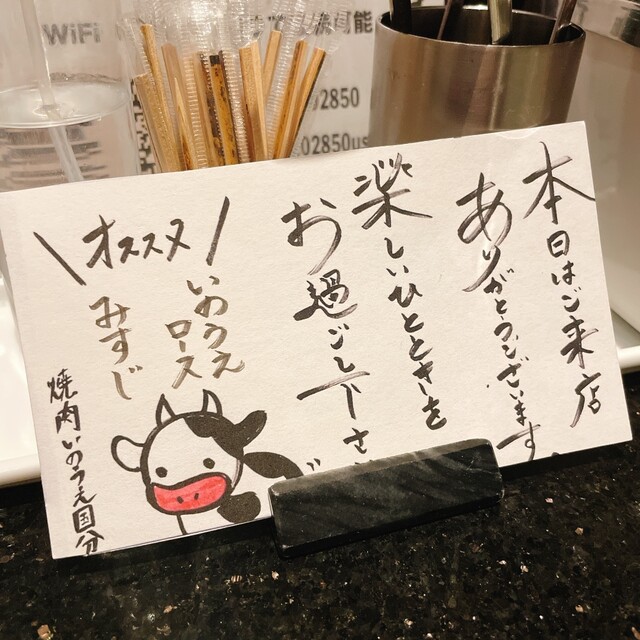 本日はご来店
ありがとうございます
楽しいひとときを
お過ごし下さ
\オススメ/
いのうえ
ロース
みすじ
焼肉いのうえ国分
WiFi
可能
02850
02850us